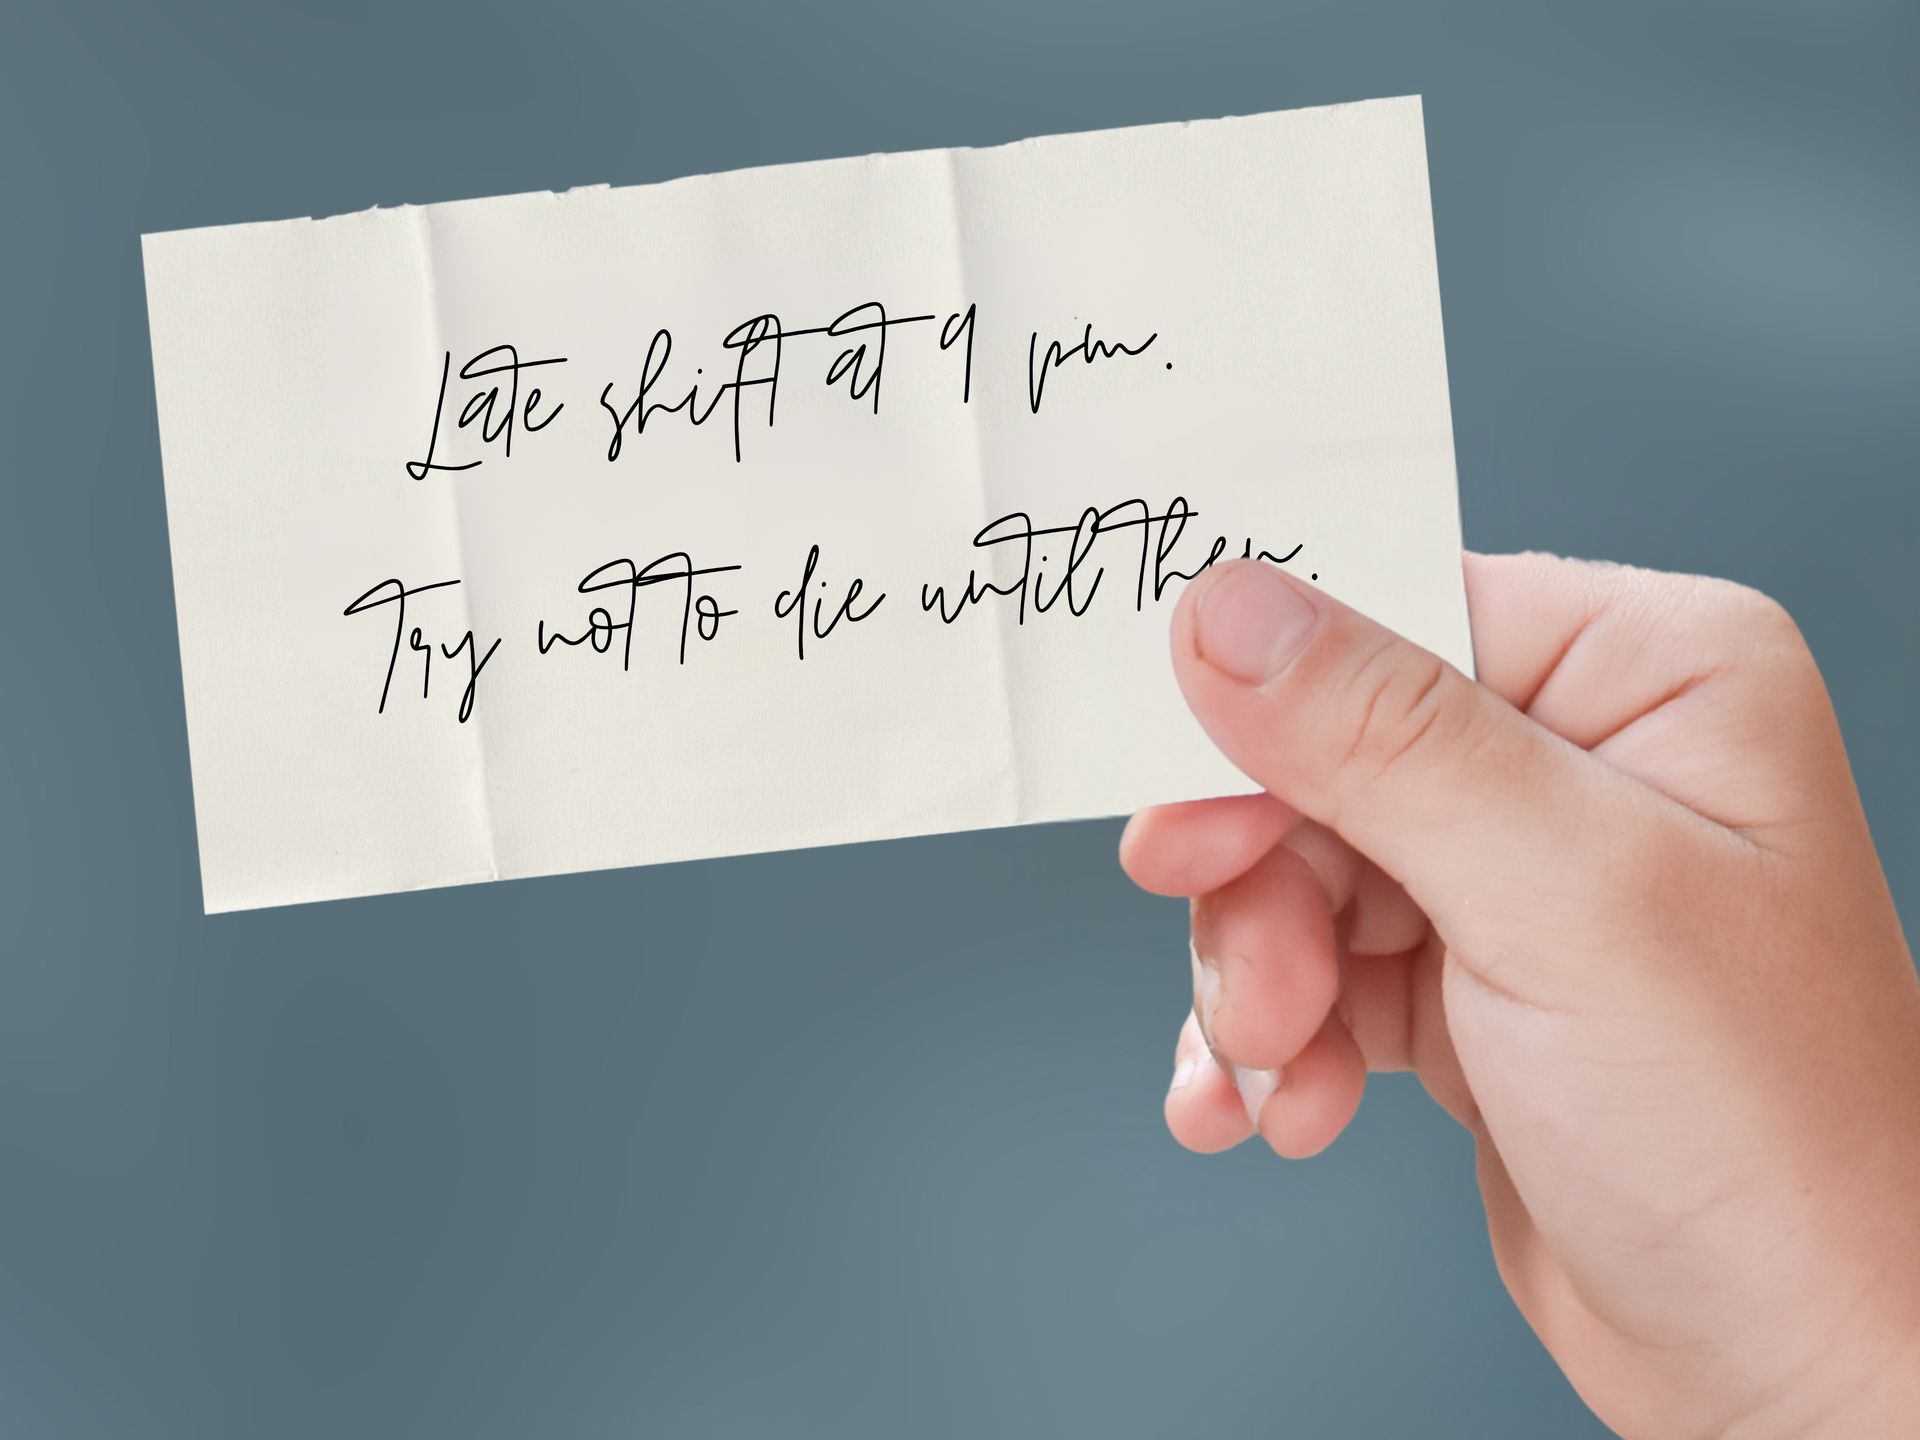 Late shift at 9 pm.
Try not to die until then.